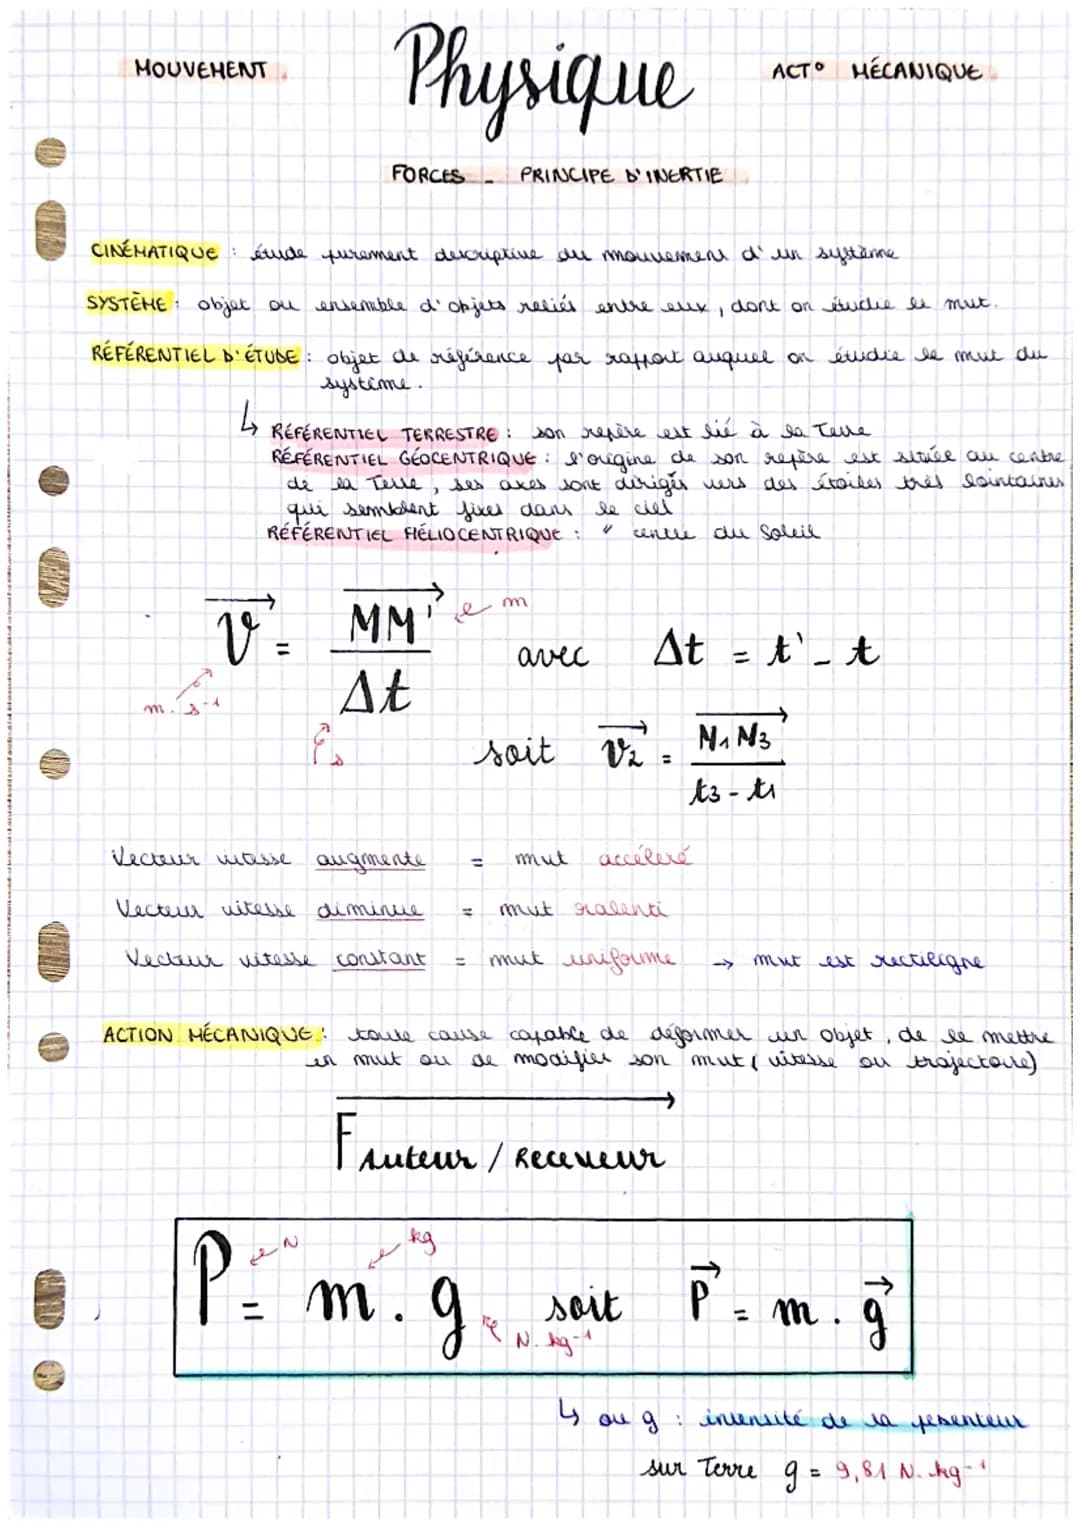 MOUVEMENT
Physique
ACT° MÉCANIQUE
FORCES - PRINCIPE D'INERTIE
CINÉMATIQUE : étude purement descriptive du mouvement d'un système
SYSTÈME : objet ou ensemble d'objets reliés entre eux, dont on étudie le mvt.
RÉFÉRENTIEL D'ÉTUDE : objet de référence par rapport auquel on étudie le mvt du
système.
↳ RÉFÉRENTIEL TERRESTRE : son repère est lié à la Terre
RÉFÉRENTIEL GÉOCENTRIQUE : l'origine de son repère est située au centre
de la Terre, ses axes sont dirigés vers des étoiles très lointaines
qui semblent fixes dans le ciel
RÉFÉRENTIEL HÉLIOCENTRIQUE : " centre du Soleil
V = MM' / Δt avec Δt = t' - t
m
m.s-1
s
soit V2 = M1M3 / t3 - t1
Vecteur vitesse augmente = mvt accéléré
Vecteur vitesse diminue = mvt ralenti
Vecteur vitesse constant = mvt uniforme → mvt est rectiligne
ACTION MÉCANIQUE : toute cause capable de déformer un objet, de le mettre
en mvt ou de modifier son mvt (vitesse ou trajectoire)
F Auteur / Receveur
P = m . g soit P = m . g
N
kg
N.kg-1
↳ ou g : intensité de la pesenteur
sur Terre g = 9,81 N.kg-1